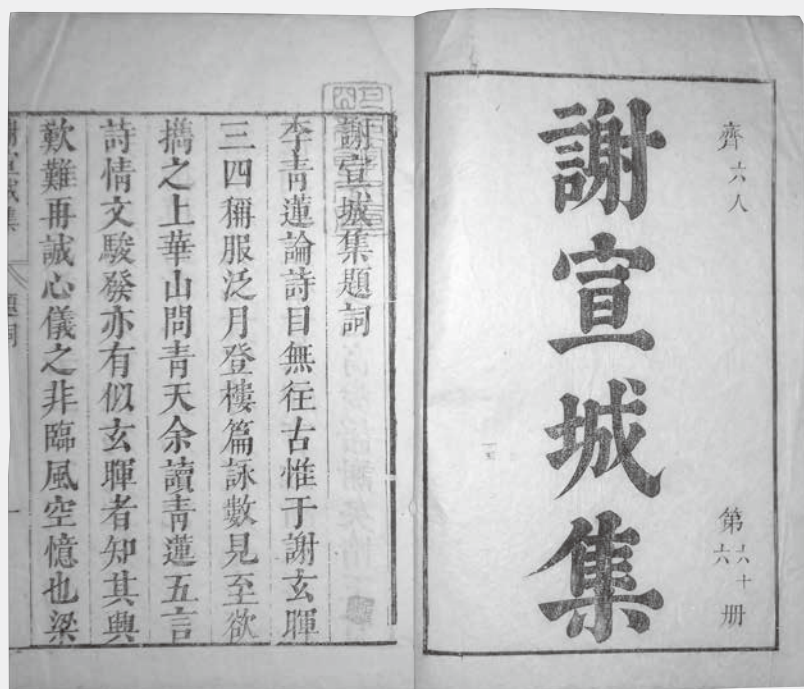 齊六人
謝宣城集
第六十六册
謝宣城集題詞
李青蓮論詩目無往古惟于謝玄暉
三四稱服泛月登樓篇詠數見至欲
攜之上華山問青天余讀青蓮五言
詩情文駿發亦有似玄暉者知其興
歎難再誠心儀之非臨風空憶也梁
謝宣城集
題詞
一